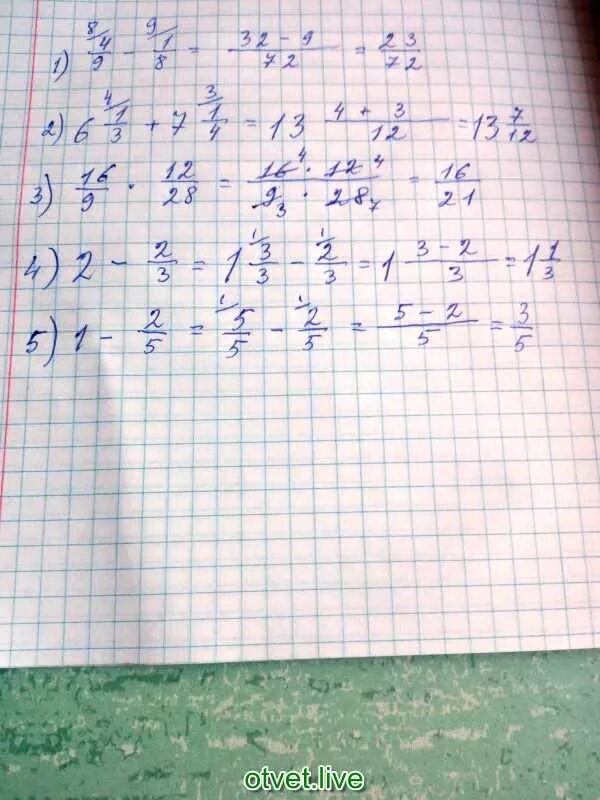 1) 8/ 4/9 - 9/ 1/8 = (32 - 9)/72 = 23/72
2) 6 4/ 1/3 + 7 3/ 1/4 = 13 (4 + 3)/12 = 13 7/12
3) 16/9 · 12/28 = (16 4 · 12 4)/(9 3 · 28 7) = 16/21
4) 2 - 2/3 = 1 1/ 3/3 - 1/ 2/3 = 1 (3 - 2)/3 = 1 1/3
5) 1 - 2/5 = 1/ 5/5 - 1/ 2/5 = (5 - 2)/5 = 3/5
otvet.live